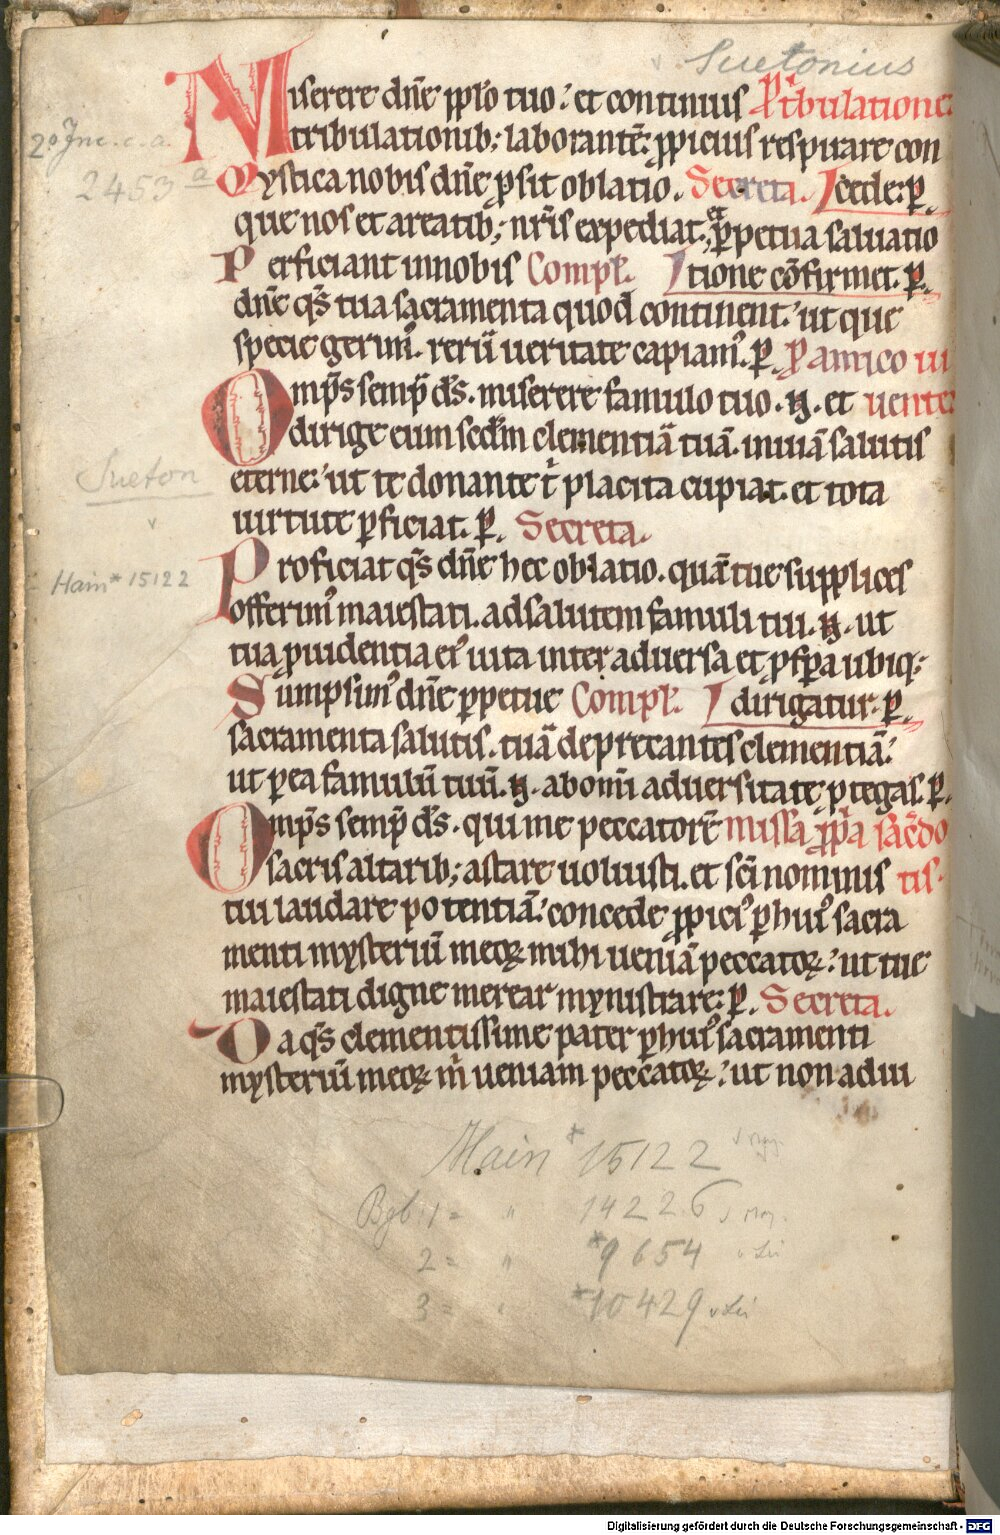 Suetonius
Miserere dn̄e pp̄lo tuo : et continuis P̱ tb̄ulatione
2° Inc. c. a. tribulationib; laborantē: p̱picius respirare con
2453 a Mystica nobis dn̄e p̱sit oblatio. Secreta. cede: p̱.
que nos et a reatib; nr̄is expediat. et p̱petua saluatio
Perficiant in nobis Compl̄. tione cōfirmet. p̱.
dn̄e qs̄ tua sacramenta quod continent: ut que
specie gerim᾽. rerū ueritate capiam᾽. p̱. P̱ amico ui
Omp̄s semp̱ ds̄. miserere famulo tuo. N. et uente
dirige eum sedm̄ clementiā tuā. in uiā salutis
Sueton eterne: ut te donante t᾽ placita cupiat. et tota
uirtute p̱ficiat. p̱. Secreta.
Hain* 15122 Proficiat qs̄ dn̄e hec oblatio. quā tue supplices
offerim᾽ maiestati. ad salutem famuli tui. N. ut
tua p̱uidentia ei᾽ uita inter aduersa et p̱sp̱a ubiq;
Sumpsim᾽ dn̄e p̱petue Compl̄. dirigatur. p̱.
sacramenta salutis. tuā deprecantes clementiā:
ut p̱ ea famulū tuū. N. ab om̄i aduersitate p̱tegas. p̱.
Omp̄s semp̱ ds̄. qui me peccatorē missa p̱p̱a sac̄do
sacris altarib; astare uoluisti. et sc̄i nominis tis.
tui laudare potentiā: concede p̱pici᾽ p̱ hui᾽ sacra
menti mysteriū meoꝝ mihi ueniā peccatoꝝ: ut tue
maiestati digne merear mynistrare: p̱. Secreta.
Da qs̄ clementissime pater p̱ hui᾽ sacramenti
mysteriū meoꝝ m̄ ueniam peccatoꝝ: ut non ad iu
Hain * 15122
Bgb. 1 = " 14226
2 = " *9654
3 = " *10429
Digitalisierung gefördert durch die Deutsche Forschungsgemeinschaft - DFG